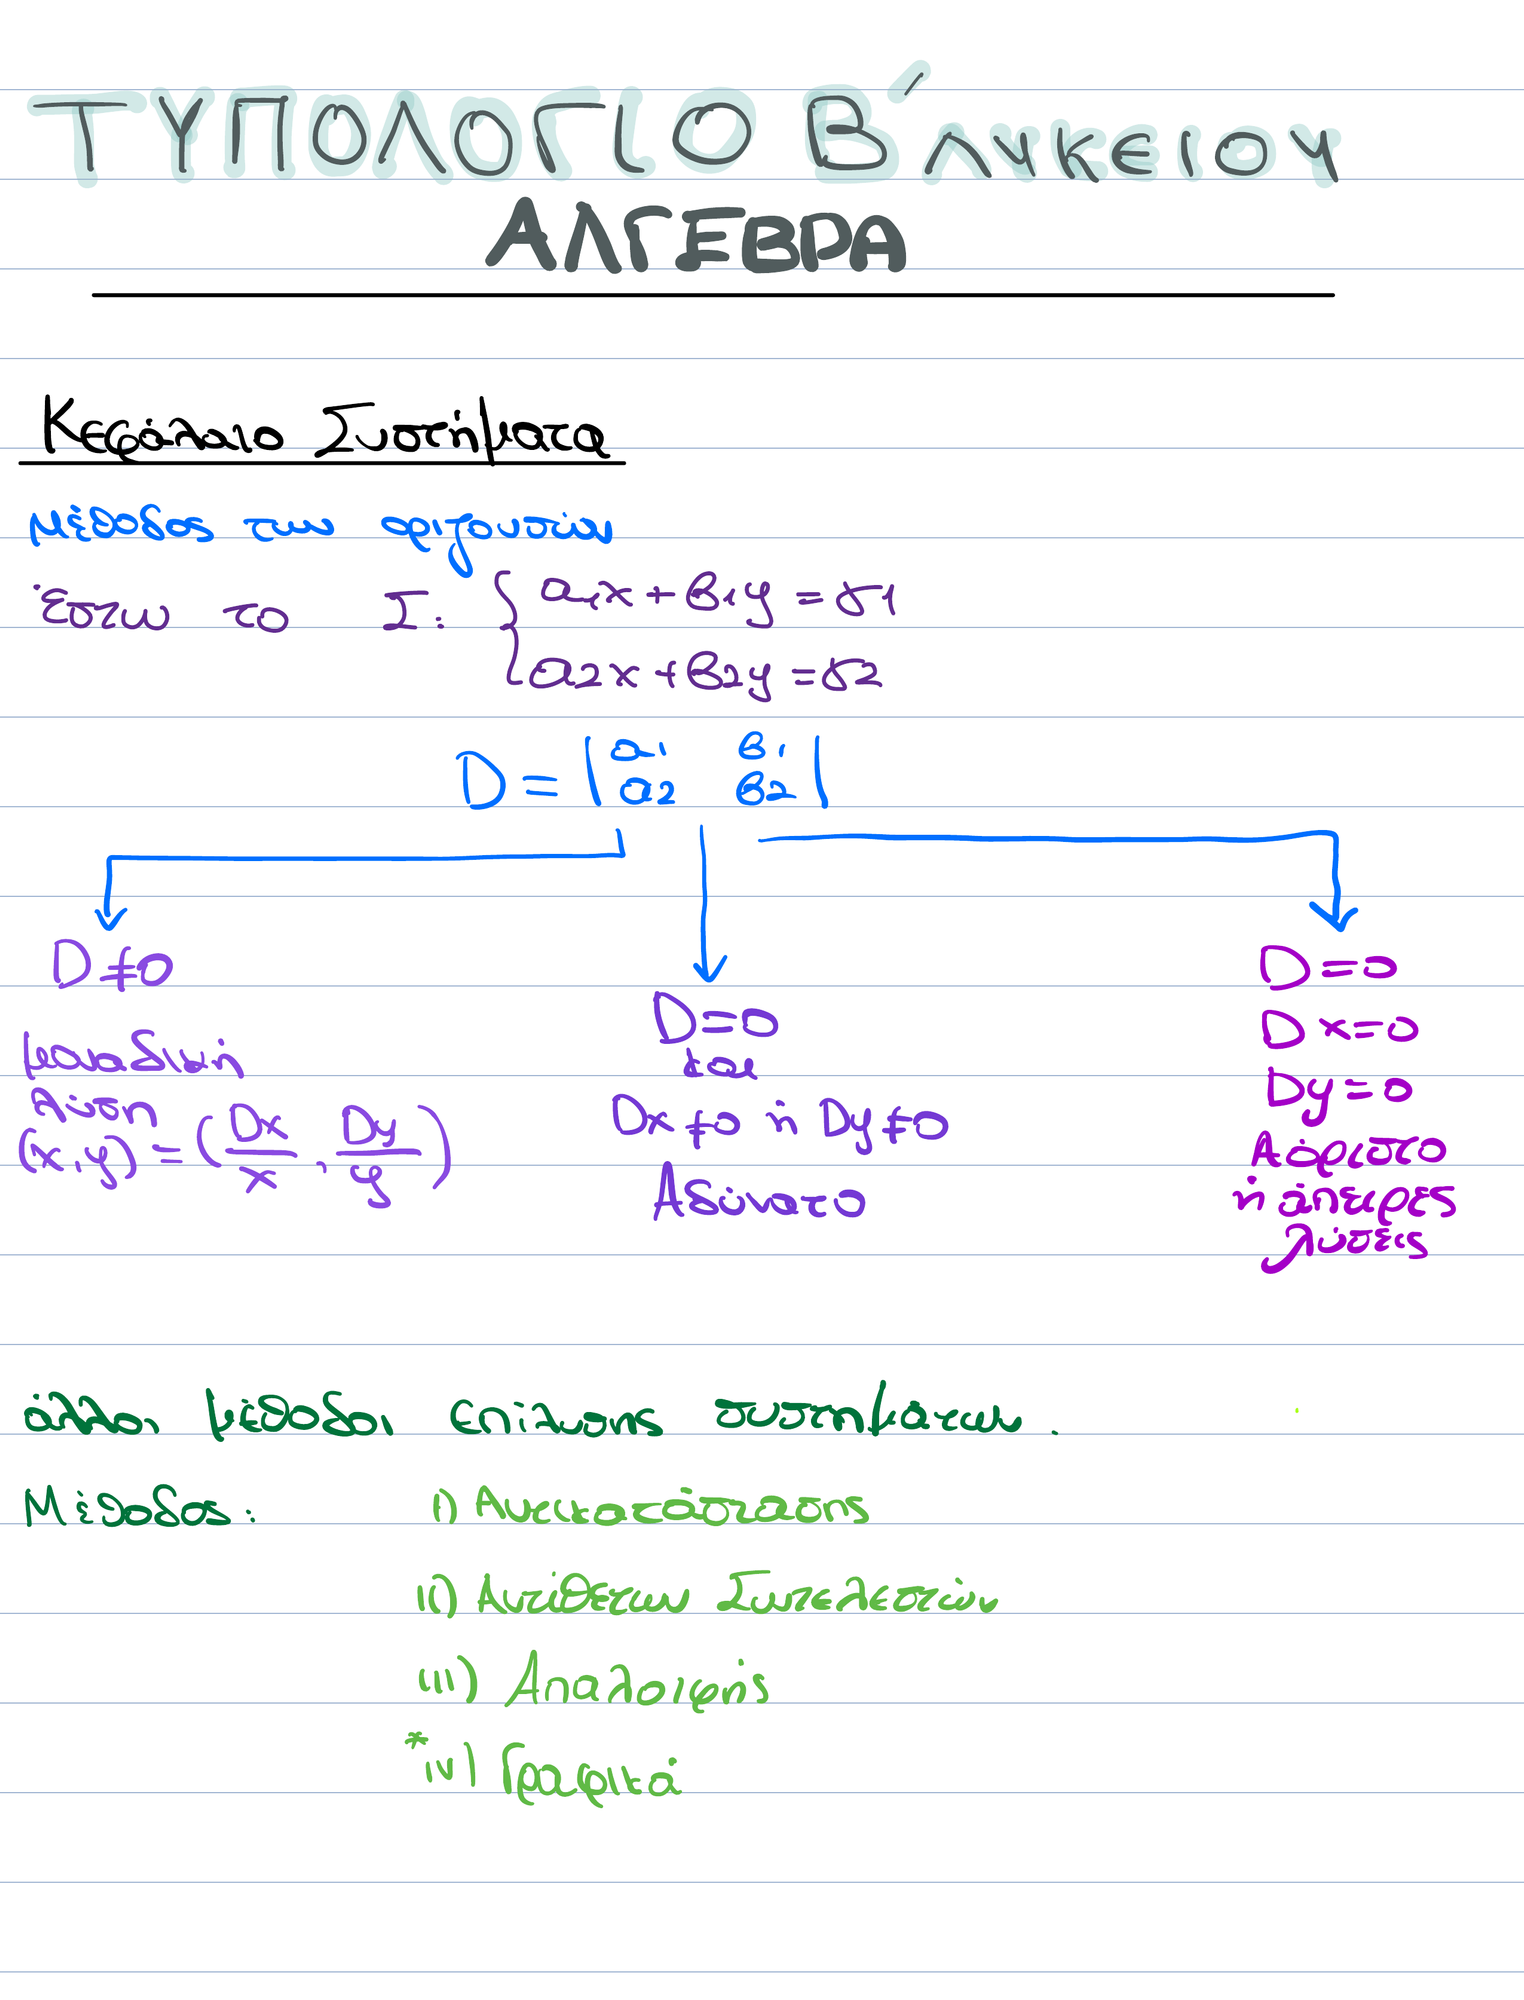 ΤΥΠΟΛΟΓΙΟ Β΄ ΛΥΚΕΙΟΥ
ΑΛΓΕΒΡΑ
Κεφάλαιο Συστήματα
Μέθοδος των οριζουσών
Έστω το Σ: { α1x + β1y = γ1
α2x + β2y = γ2
D = | α1 β1 |
| α2 β2 |
D ≠ 0
μοναδική
λύση
(x, y) = (Dx/x, Dy/y)
D = 0
και
Dx ≠ 0 ή Dy ≠ 0
Αδύνατο
D = 0
Dx = 0
Dy = 0
Αόριστο
ή άπειρες
λύσεις
άλλοι μέθοδοι επίλυσης συστημάτων.
Μέθοδος:
i) Αντικατάστασης
ii) Αντίθετων Συντελεστών
iii) Απαλοιφής
*iv) Γραφικά